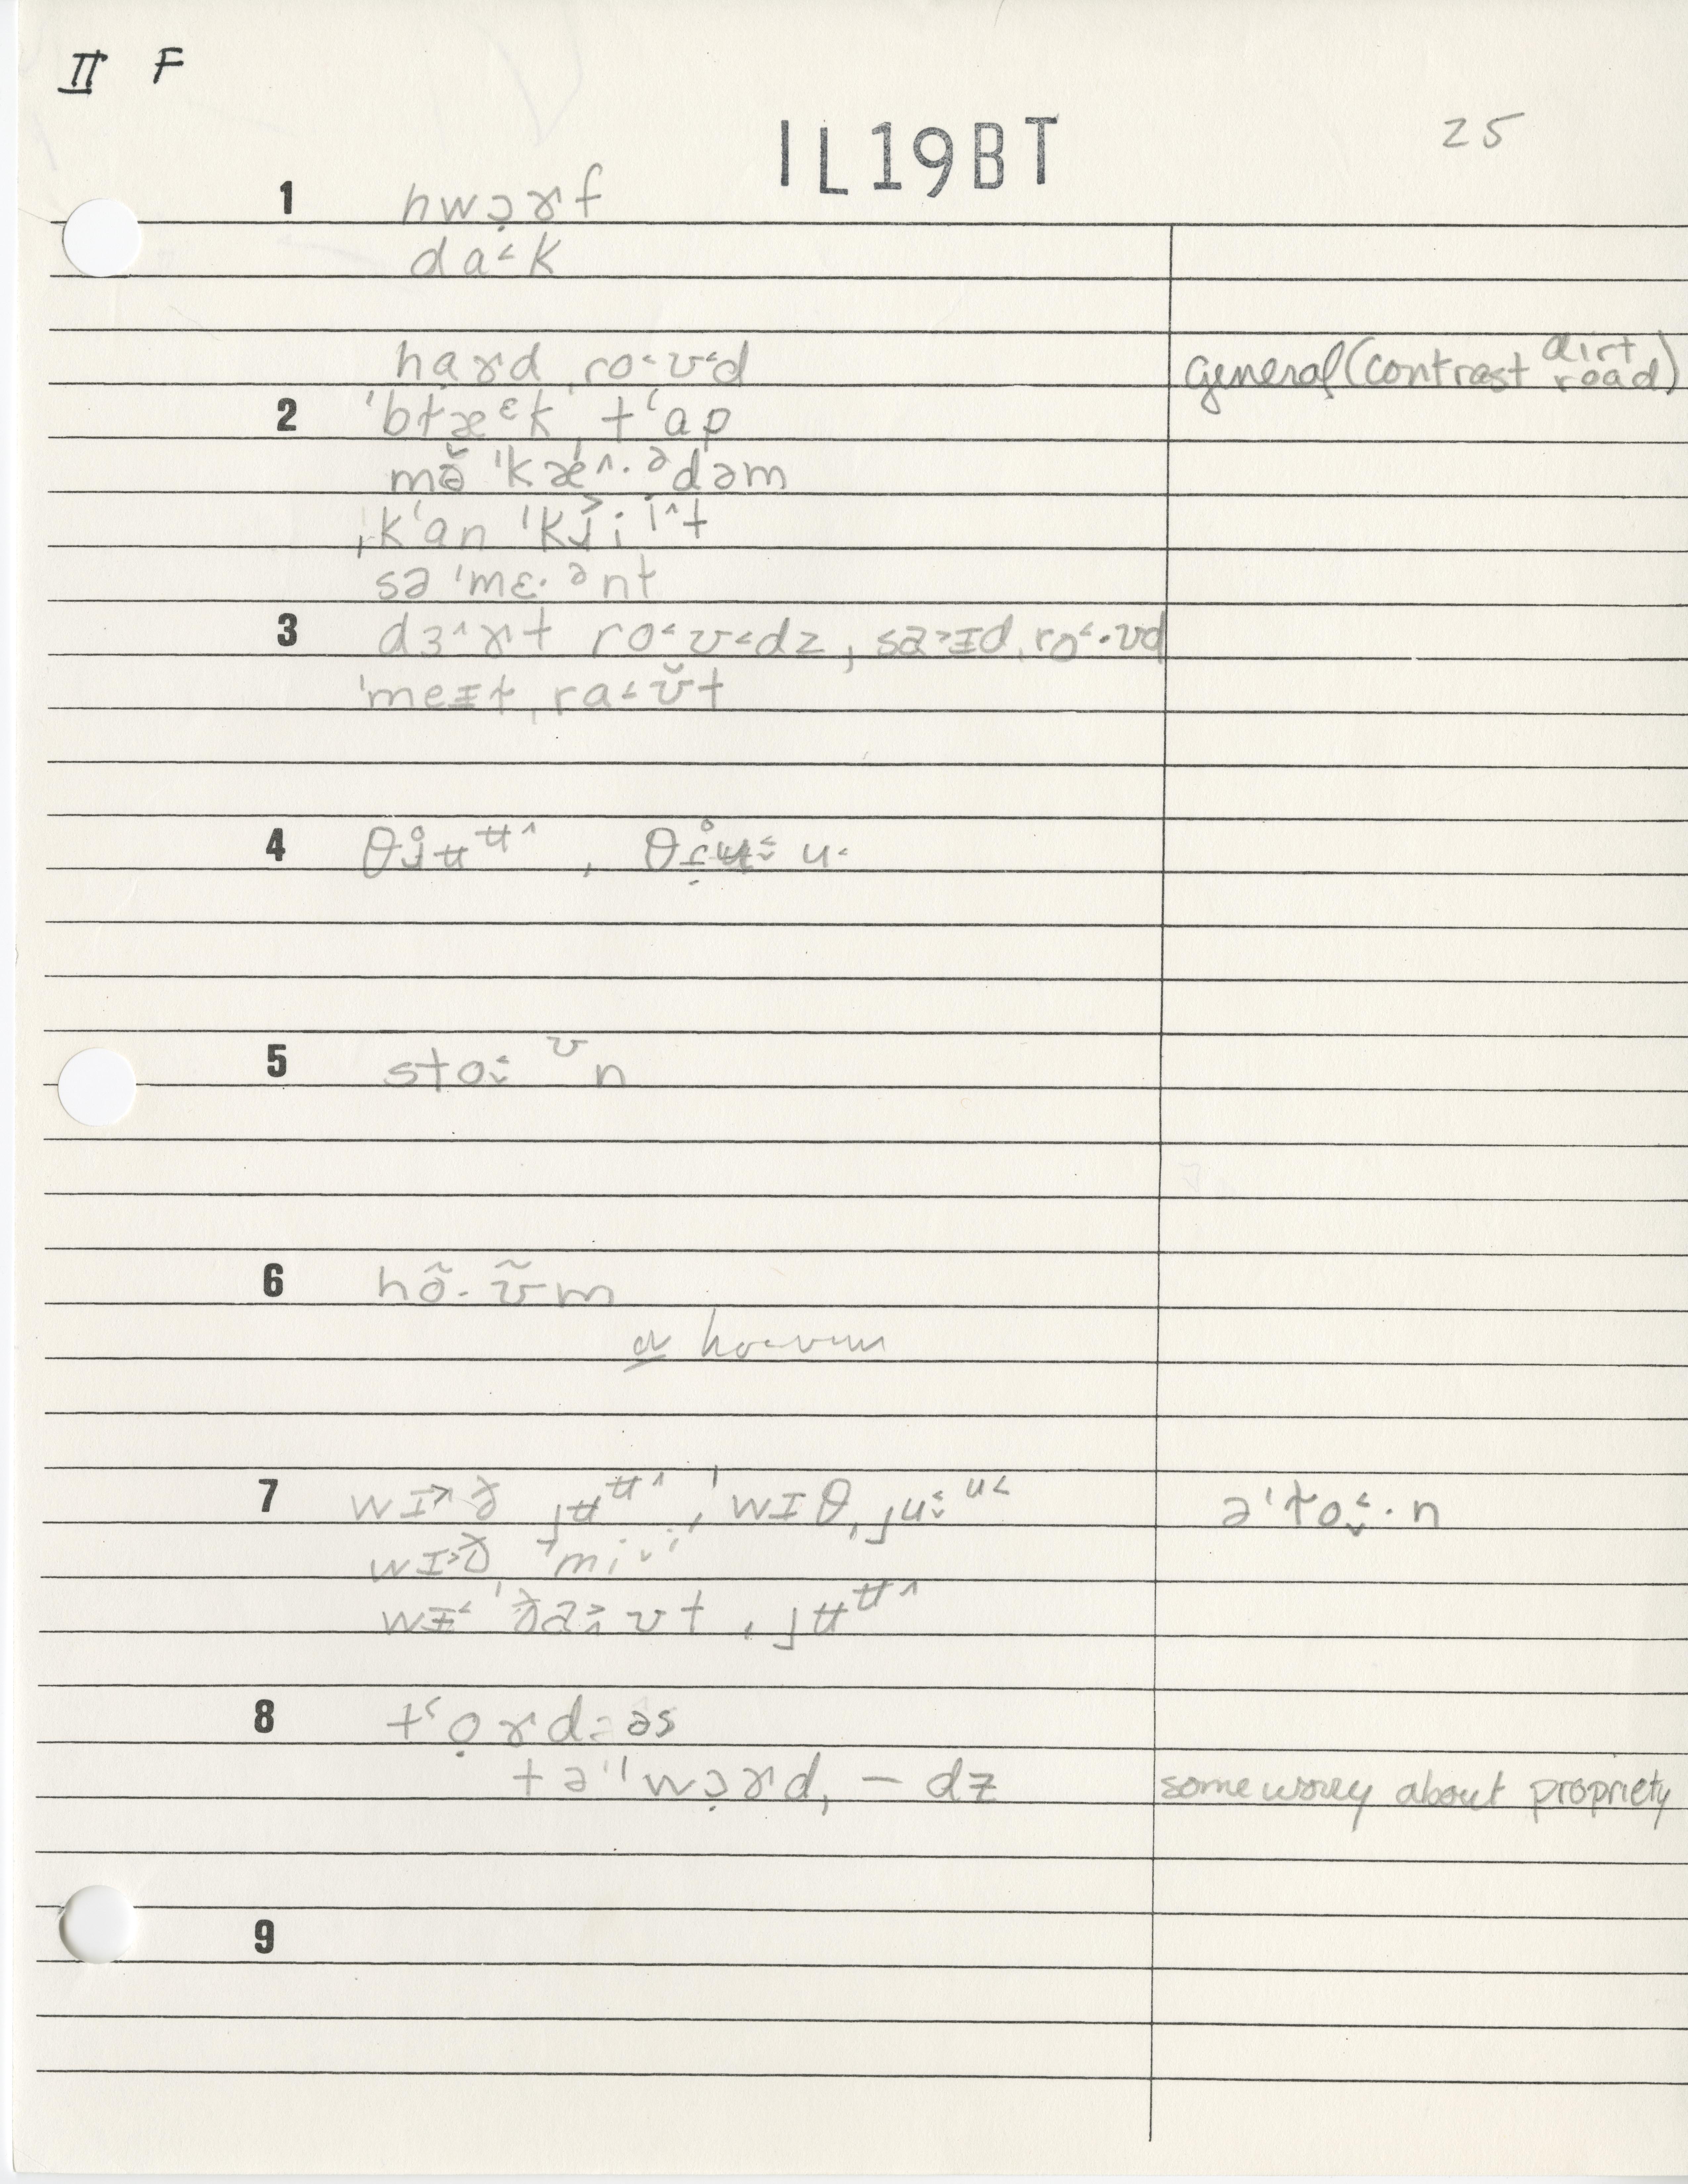 II F
IL19BT
25
1 hwɔ̣ɚf
da˂k
hạɚd ˌro˂ʊ˂d general (contrast dirt road)
2 ˈbɫæᵋk ˌtʻap
mə̆ ˈkæ˄·ᵊdəm
ˌkʻan ˈkɹi
sə ˈmɛ·ᵊnt
3 dɜ˄ɚt ro˂ʊ˂dz, sa˃ɪd ˌro˂·ʊd
ˈmeɪɫ ˌra˂ʊ̆t
4 θɹ̥ʉᶶ˄ ,
5 sto˂˅ ᶷn
6 hõ·ʊ̃m
7 wɪ˃ð jʉᶶ˄, ˈwɪθ ˌju˂˅ ᵘ˂ əˈɫo˂˅·n
wɪ˃ð ˈmi˅ⁱ
wɪ˂ ˈða˃˄ʊt ˌjʉᶶ˄
8 tʻọɚd z əs
təˈwɔ̣ɚd, – dz some worry about propriety
9